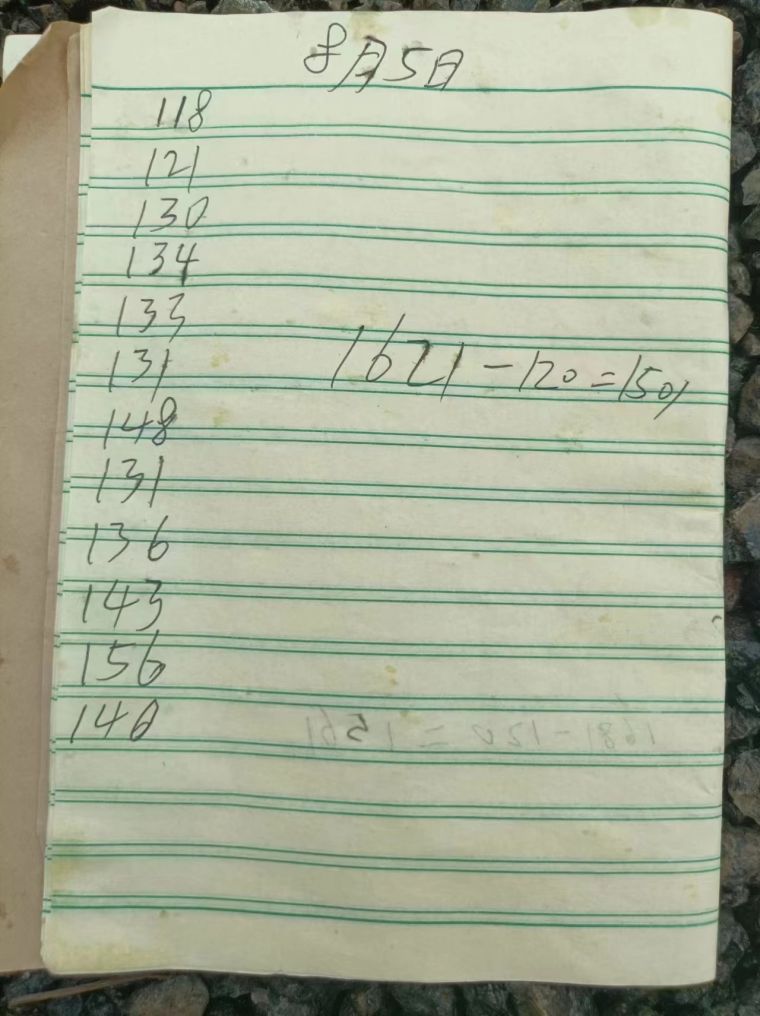 8月5日
118
121
130
134
133
131
1621-120=1501
148
131
136
143
156
140